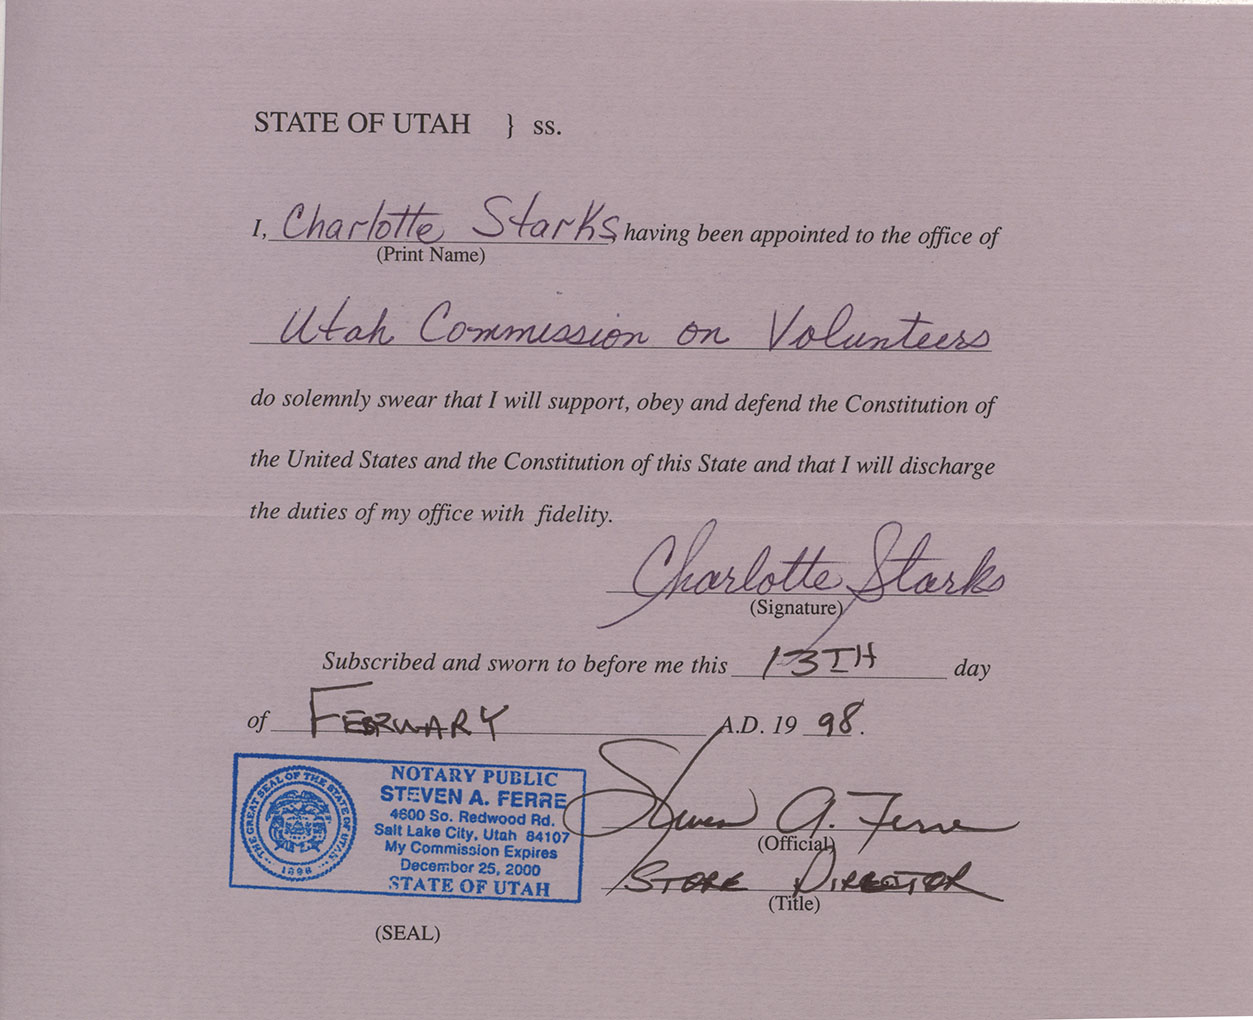 STATE OF UTAH } ss.
I, Charlotte Starks, having been appointed to the office of
(Print Name)
Utah Commission on Volunteers
do solemnly swear that I will support, obey and defend the Constitution of
the United States and the Constitution of this State and that I will discharge
the duties of my office with fidelity.
Charlotte Starks
(Signature)
Subscribed and sworn to before me this 13TH day
of FEBRUARY A.D. 19 98.
THE GREAT SEAL OF THE STATE OF UTAH
1896
NOTARY PUBLIC
STEVEN A. FERRE
4600 So. Redwood Rd.
Salt Lake City, Utah 84107
My Commission Expires
December 25, 2000
STATE OF UTAH
Steven A. Ferre
(Official)
STORE DIRECTOR
(Title)
(SEAL)